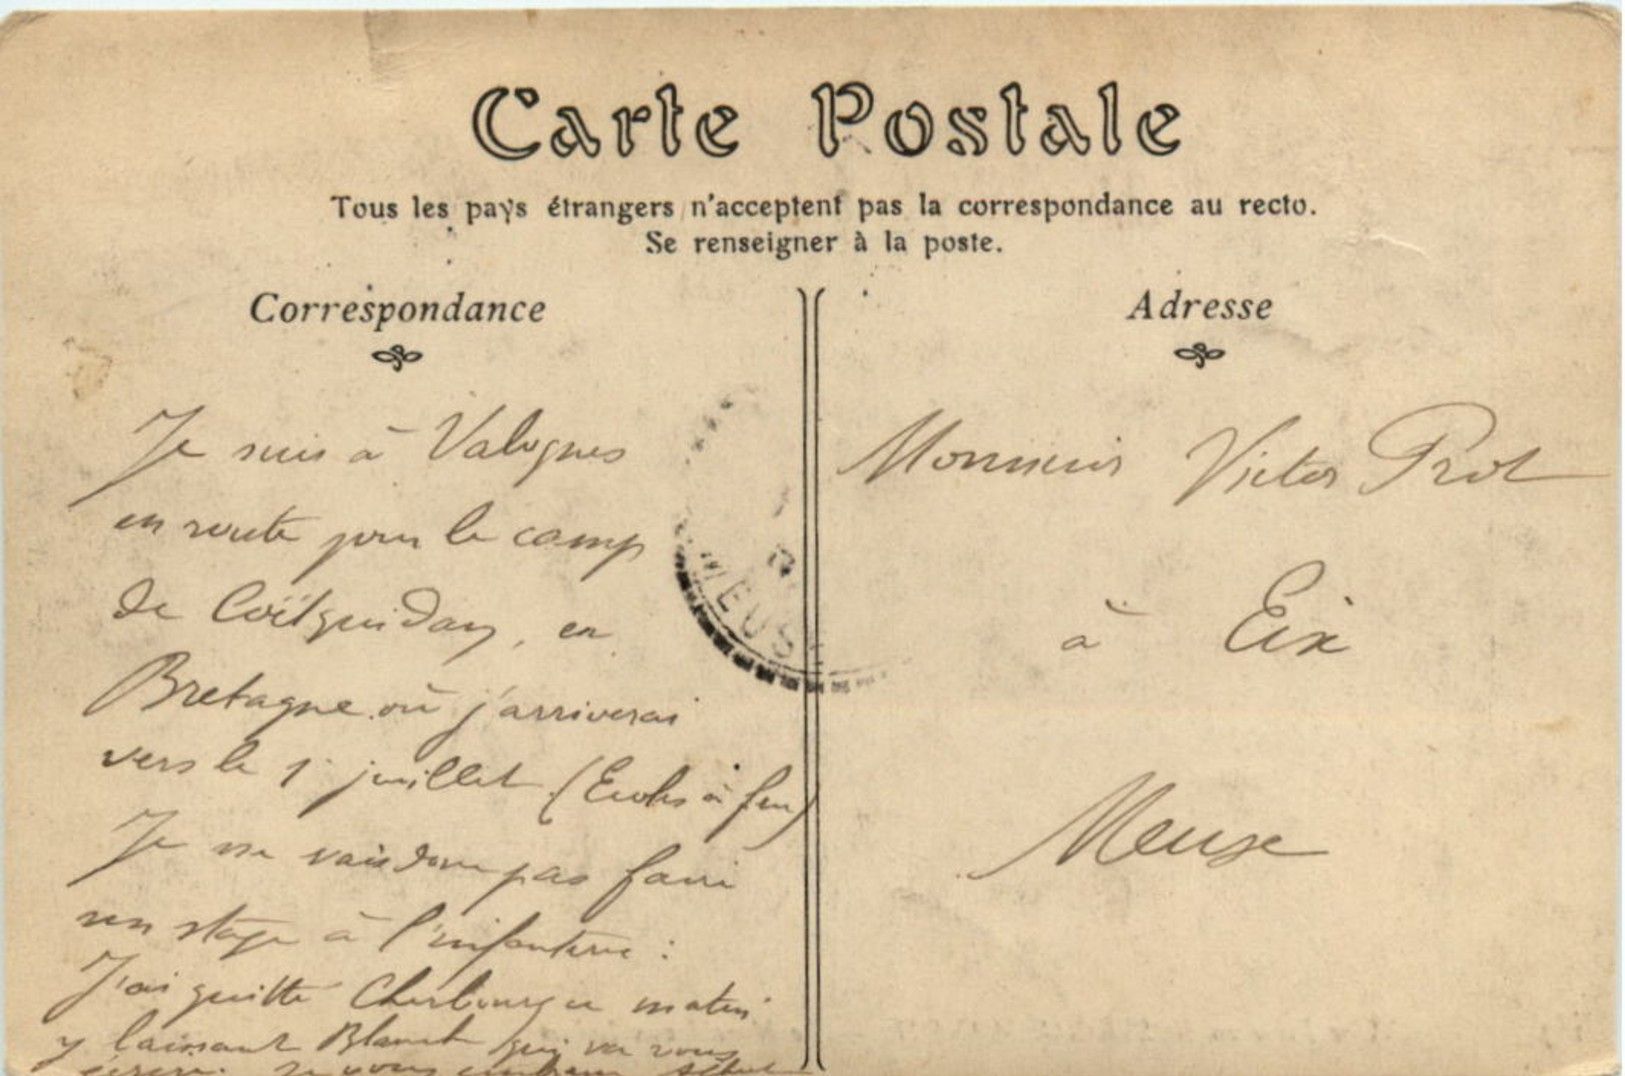 Carte Postale
Tous les pays étrangers n'acceptent pas la correspondance au recto.
Se renseigner à la poste.
Correspondance
Je suis à Valognes
en route pour le camp
de Coëtquidan, en
Bretagne où j'arriverai
vers le 1er juillet (Ecoles à feu)
Je ne vais donc pas faire
un stage à l'infanterie :
J'ai quitté Cherbourg ce matin
y laissant Blanche qui va vous
écrire. Je vous embrasse
MEUSE
Adresse
Monsieur Victor Prot
à Eix
Meuse